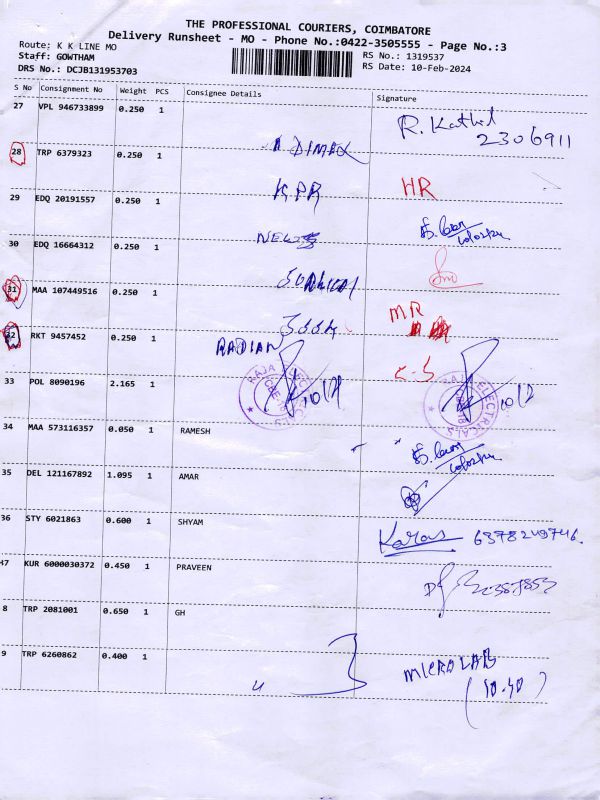 THE PROFESSIONAL COURIERS, COIMBATORE
Delivery Runsheet - MO - Phone No.:0422-3505555 - Page No.:3
Route: K K LINE MO
Staff: GOWTHAM
DRS No.: DCJB131953703
RS No.: 1319537
RS Date: 10-Feb-2024
S No Consignment No Weight PCS Consignee Details Signature
27 VPL 946733899 0.250 1 R. Kathil 2306911
28 TRP 6379323 0.250 1 DIMAX
29 EDQ 20191557 0.250 1 KPR HR
30 EDQ 16664312 0.250 1
31 MAA 107449516 0.250 1 SURGICAL
32 RKT 9457452 0.250 1 MR
RADIAN
33 POL 8090196 2.165 1 10/2 10/2
RAJA ELECTRICALS RAJA ELECTRICALS
34 MAA 573116357 0.050 1 RAMESH
35 DEL 121167892 1.095 1 AMAR
36 STY 6021863 0.600 1 SHYAM Karas 6378249746.
H7 KUR 6000030372 0.450 1 PRAVEEN
8 TRP 2081001 0.650 1 GH
9 TRP 6260862 0.400 1 MICRO LAB
(10.40)